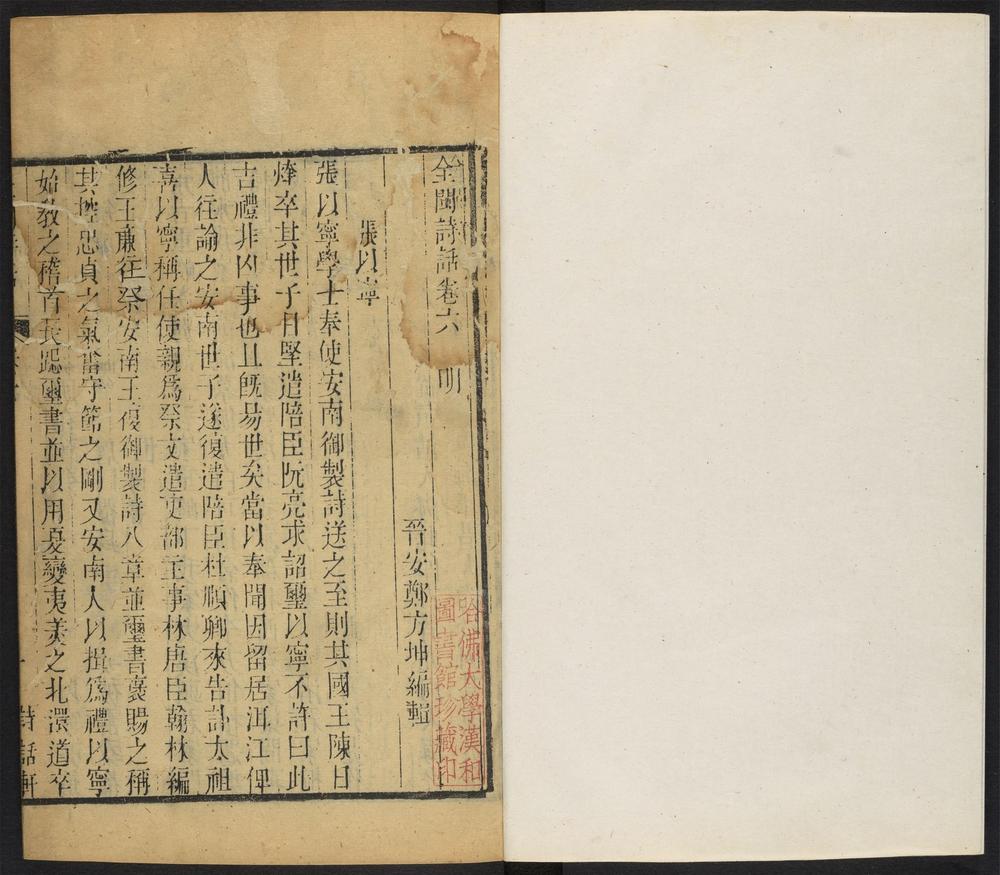 全閩詩話卷六 明
晉安鄭方坤編輯
張以寧
張以寧學士奉使安南御製詩送之至則其國王陳日
煃卒其世子日堅遣陪臣阮亮求詔璽以寧不許曰此
吉禮非凶事也且旣易世矣當以奉聞因留居洱江俾
人往諭之安南世子遂復遣陪臣杜順卿來告訃太祖
喜以寧稱任使親爲祭文遣吏部主事林唐臣翰林編
修王廉往祭安南王復御製詩八章並璽書褒賜之稱
其 忠貞之氣 守節之剛又安南人以揖爲禮以寧
始敎之稽首長跽璽書並以用夏變夷美之北還道卒
詩話軒
哈佛大學漢和
圖書館珍藏印